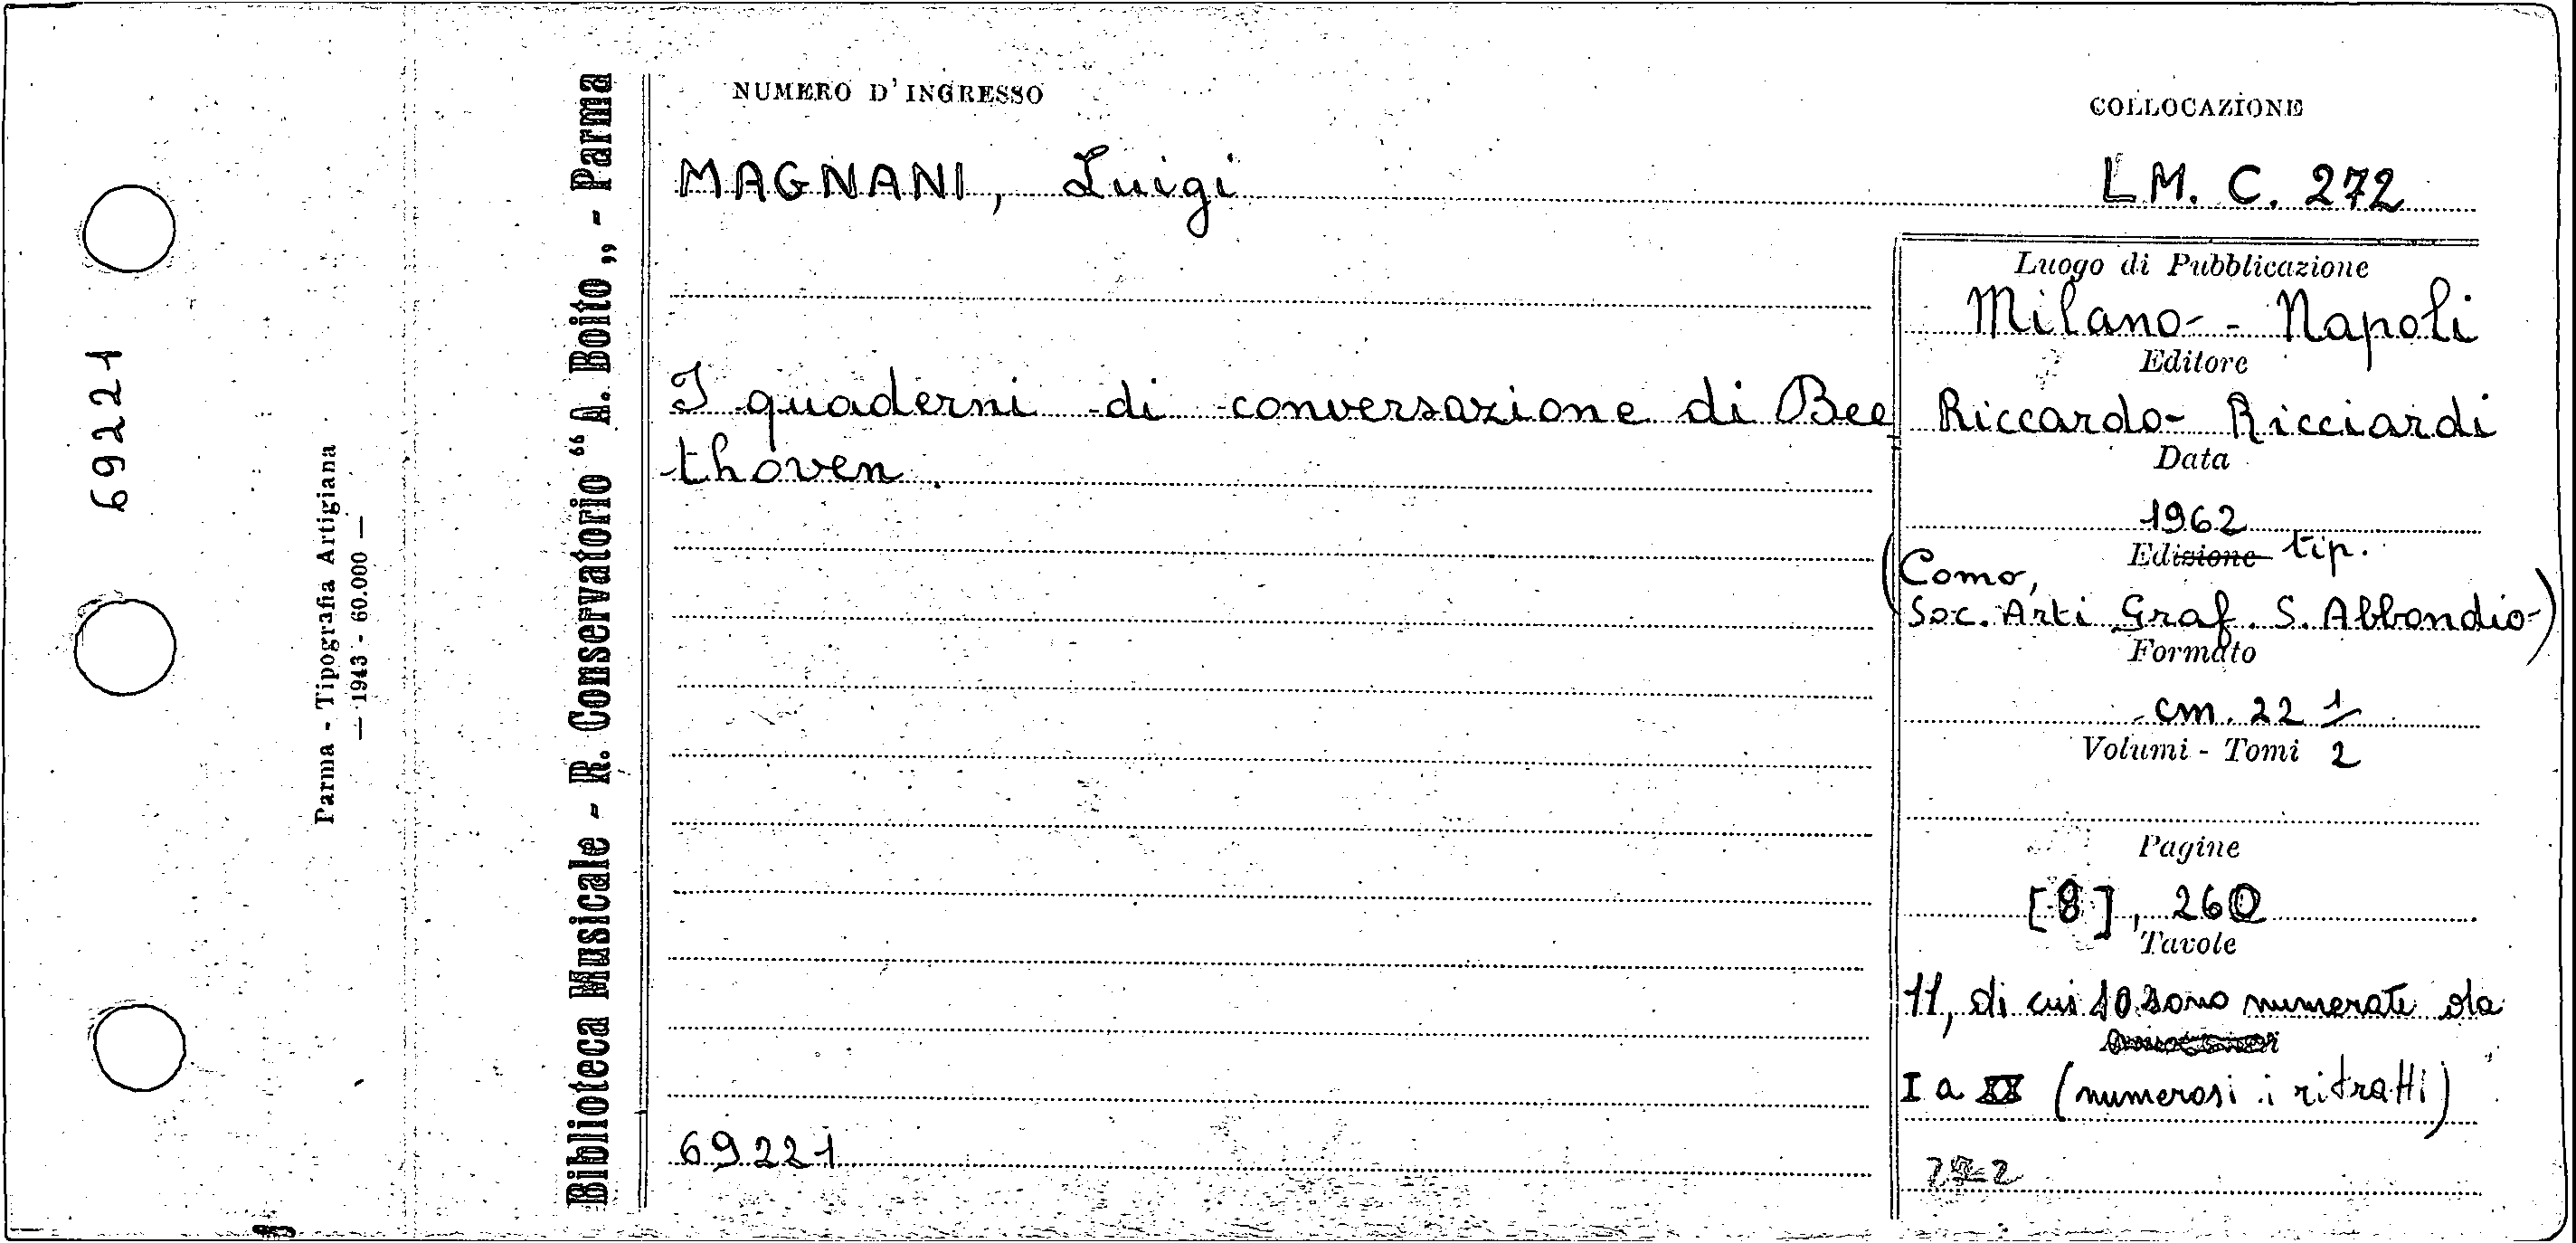 69221
Parma - Tipografia Artigiana
— 1943 - 60.000 —
Biblioteca Musicale - R. Conservatorio “ A. Boito „ - Parma
NUMERO D'INGRESSO
COLLOCAZIONE
MAGNANI, Luigi
L M. C. 272
I quaderni di conversazione di Bee
thoven.
Luogo di Pubblicazione
Milano - Napoli
Editore
Riccardo Ricciardi
Data
1962
Edizione tip.
(Como,
Soc. Arti Graf. S. Abbondio)
Formato
cm. 22 1/2
Volumi - Tomi
Pagine
[8], 260
Tavole
11, di cui 10 sono numerate da
I a XX (numerosi i ritratti)
69221
272